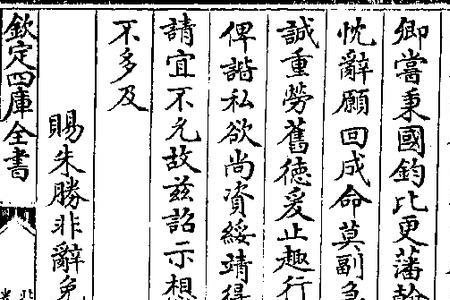 卿嘗秉國鈞比更藩翰
忱辭願回成命莫副
誠重勞舊徳爰止趣行
俾諧私欲尚資綏靖得
請宜不允故兹詔示想
不多及
賜朱勝非辭免
欽定四庫全書